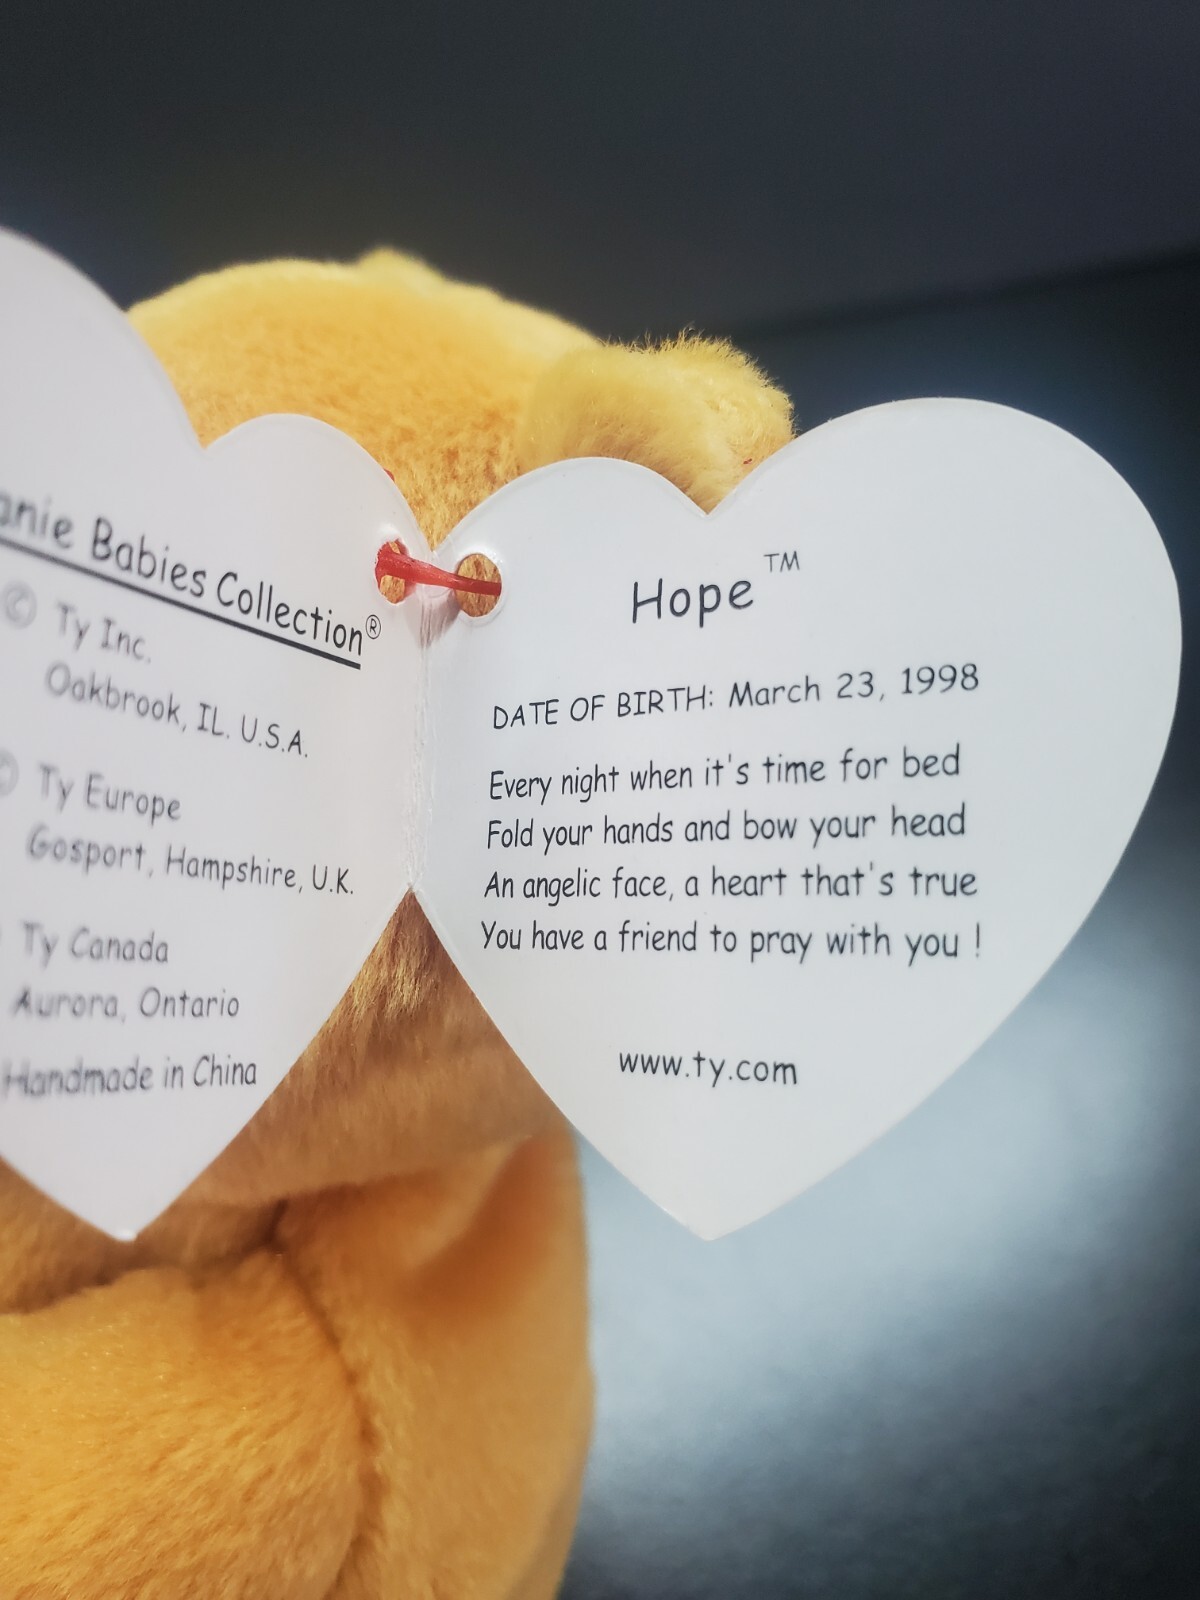 Babies Collection®
© Ty Inc.
Oakbrook, IL. U.S.A.
© Ty Europe
Gosport, Hampshire, U.K.
Ty Canada
Aurora, Ontario
Handmade in China
Hope™
DATE OF BIRTH: March 23, 1998
Every night when it's time for bed
Fold your hands and bow your head
An angelic face, a heart that's true
You have a friend to pray with you !
www.ty.com